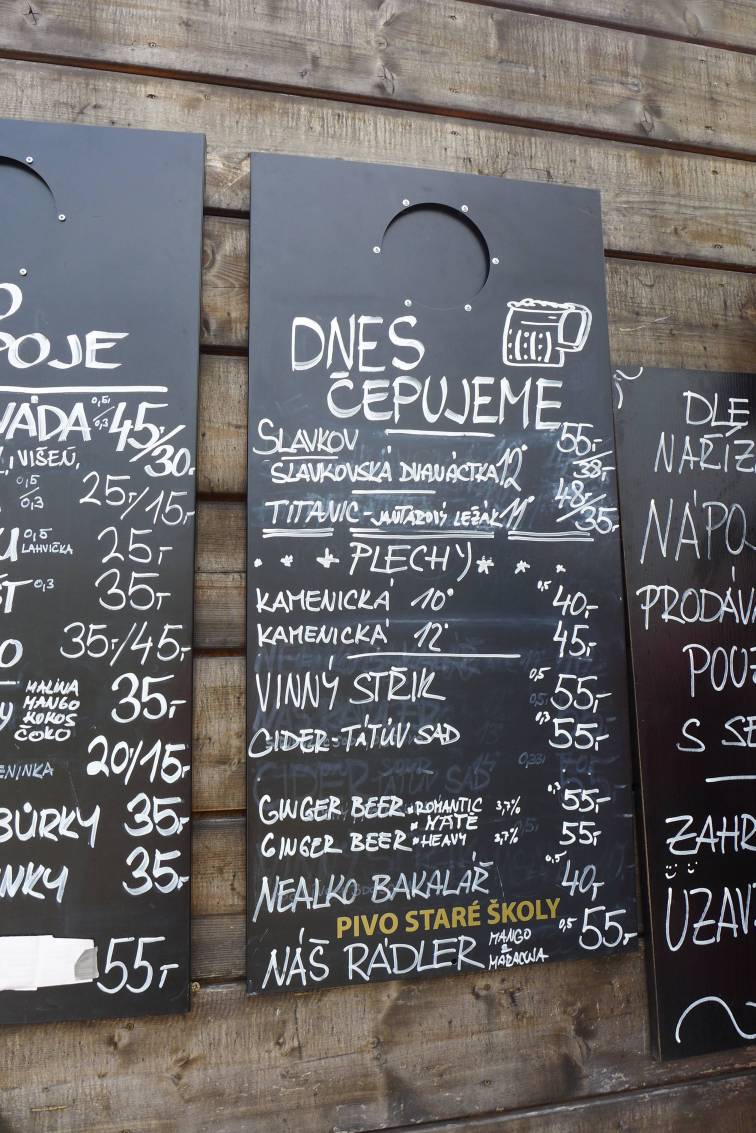 POJE
VÁDA 0,5l 45/
0,3 30,-
VIŠEŇ,
0,5
0,3 25,-/15,-
0,5
LAHVIČKA 25,-
0,3 35,-
35,-/45,-
MALINA
MANGO
KOKOS
ČOKO 35,-
20/15,-
BŮRKY 35,-
35,-
55,-
DNES
ČEPUJEME
SLAVKOV 55,-
SLAVKOVSKÁ 38,-
TITANIC - JANTAROVÝ LEŽÁK 11° 48/35,-
* PLECHY *
KAMENICKÁ 10° 0,5 40,-
KAMENICKÁ 12° 45,-
VINNÝ STŘIK 0,5 55,-
CIDER - TÁTŮV SAD 0,3 55,-
GINGER BEER "ROMANTIC KATE" 3,7% 0,3 55,-
GINGER BEER "HEAVY 3,7% 55,-
NEALKO BAKALÁŘ 0,5 40,-
PIVO STARÉ ŠKOLY
NÁŠ RADLER MANGO & MARACUJA 0,5 55,-
DLE
NAŘÍZ
NÁPO
PRODÁV
POUZ
S SE
ZAHR
UZAV